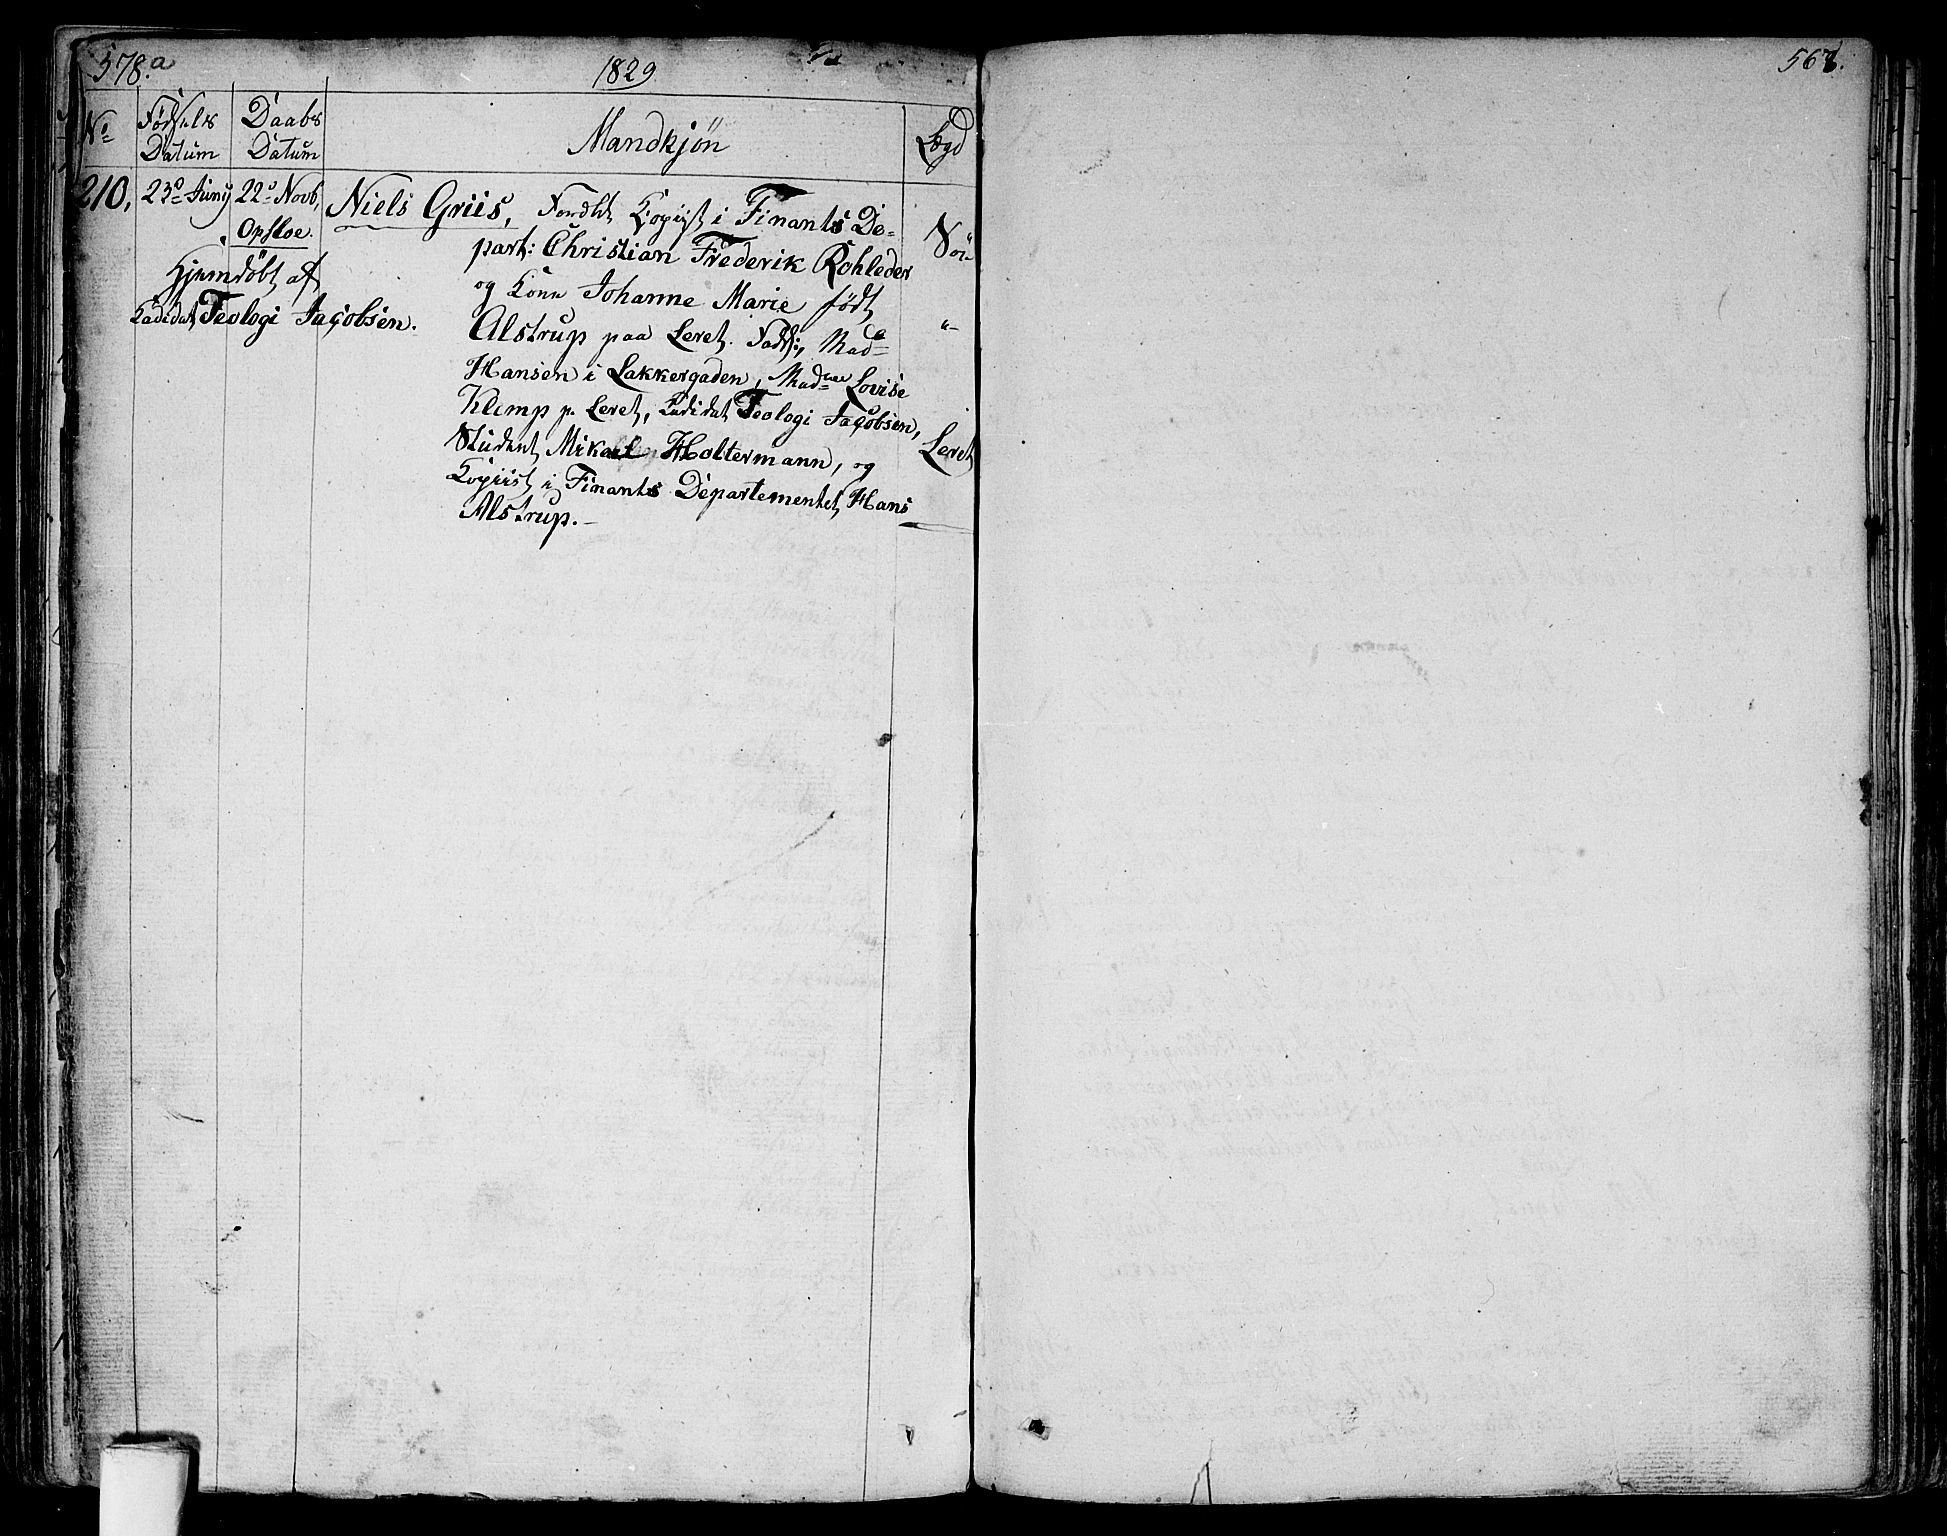 578.a
1829
567.
No
Fødsels Datum
Daabs Datum
Mandkjön
Lægd
210,
23de Juny
22de Novb,
Opsloe.
Hjemdöbt af
Kadidat Teologi Jacobsen.
Niels Griis, Forældr Kopiist i Finants De-
part: Christian Frederik Rohleder
og Kone Johanne Marie født
Alstrup paa Leret. Fadd:, Made
Hansen i Lakkergaden, Madme Lovise
Klemp p. Leret, Kadidat Teologi Jacobsen,
Student Mikael Holtermann, og
Kopiist i Finants Departementet, Hans
Alstrup.
Nöi
"
Leret